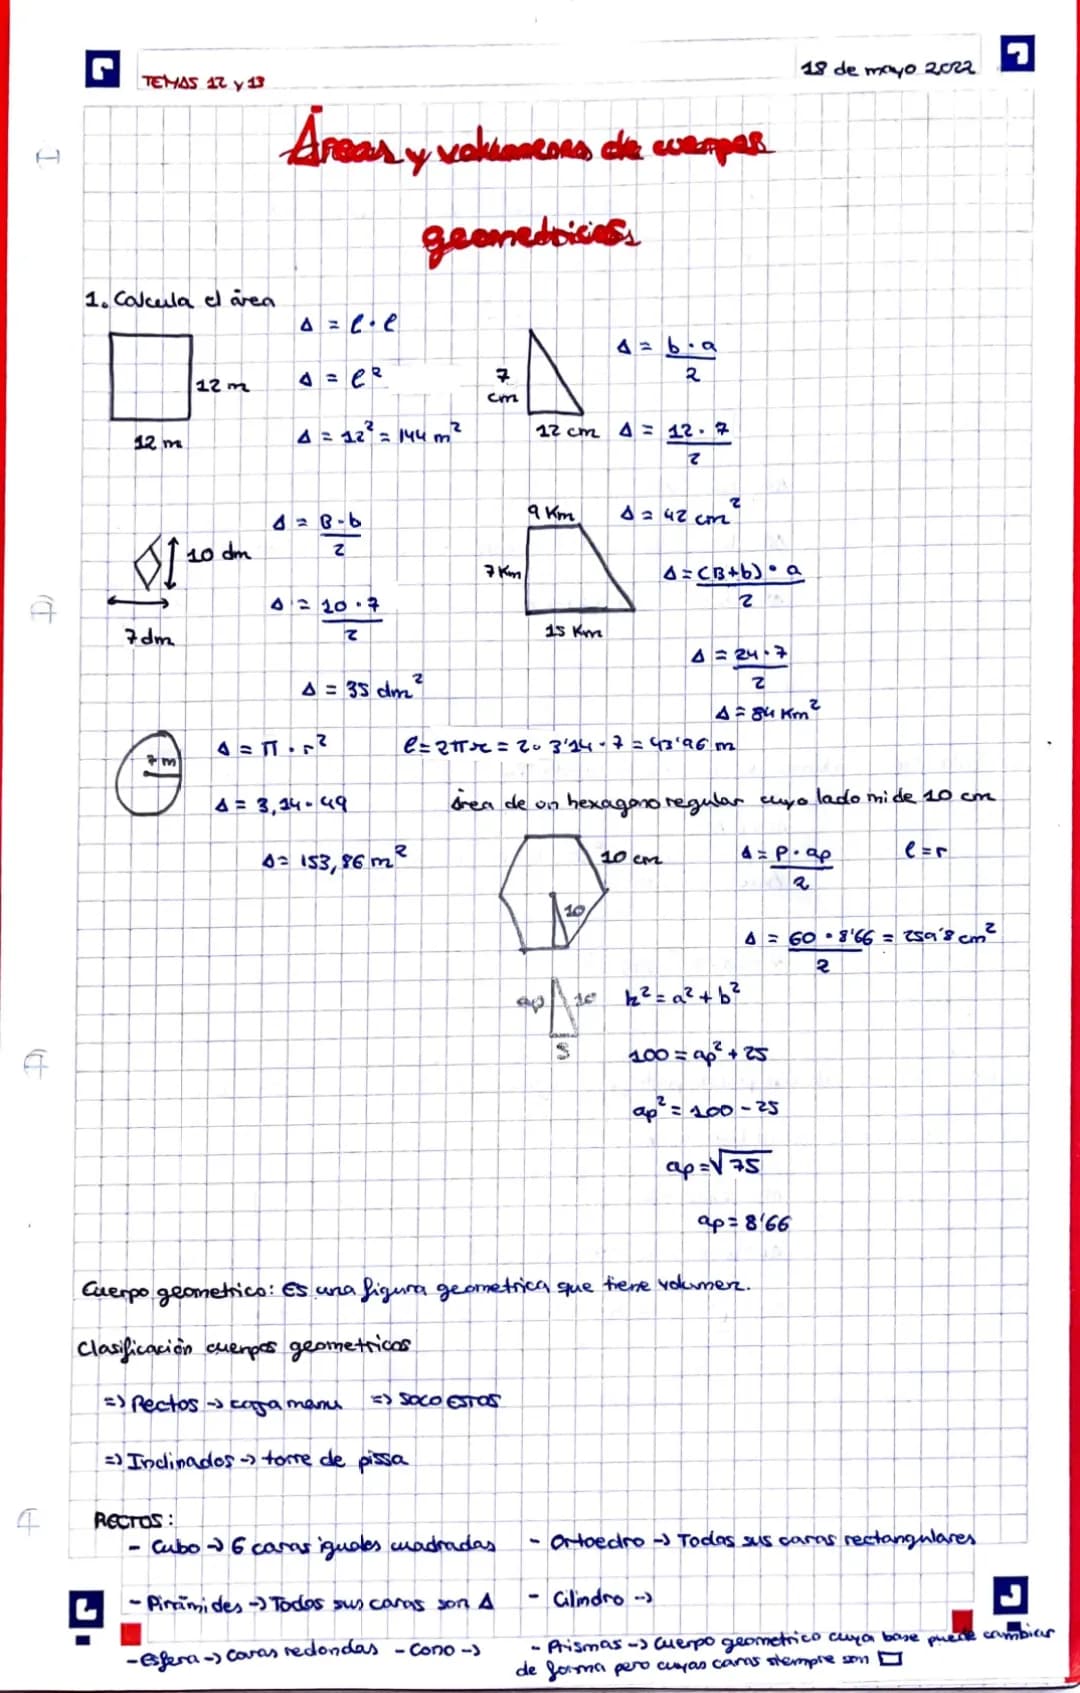 TEMAS 12 y 13
18 de mayo 2022
Áreas y volúmenes de cuerpos
geometricos
1. Calcula el área
12 m
12 m
A = l · l
A = l²
A = 12² = 144 m²
7 cm
12 cm
A = b · a / 2
A = 12 · 7 / 2
A = 42 cm²
10 dm
7 dm
A = B · b / 2
A = 10 · 7 / 2
A = 35 dm²
9 Km
7 Km
15 Km
A = (B+b) · a / 2
A = 24 · 7 / 2
A = 84 Km²
7 m
A = π · r²
A = 3,14 · 49
A = 153,86 m²
l = 2πr = 2 · 3'14 · 7 = 43'96 m
área de un hexagono regular cuyo lado mide 10 cm
10 cm
10
A = P · ap / 2
l = r
A = 60 · 8'66 / 2 = 259'8 cm²
ap 10
5
h² = a² + b²
100 = ap² + 25
ap² = 100 - 25
ap = √75
ap = 8'66
Cuerpo geometrico: Es una figura geometrica que tiene volumen.
Clasificación cuerpos geometricos
=> Rectos -> casa manu => SOCO ESTOS
=> Inclinados -> torre de pissa
RECTOS:
- Cubo -> 6 caras iguales cuadradas
- Ortoedro -> Todas sus caras rectangulares
- Pirámides -> Todos sus caras son Δ
- Cilindro ->
- Esfera -> Caras redondas - Cono ->
- Prismas -> Cuerpo geometrico cuya base puede cambiar
de forma pero cuyas caras siempre son ▭